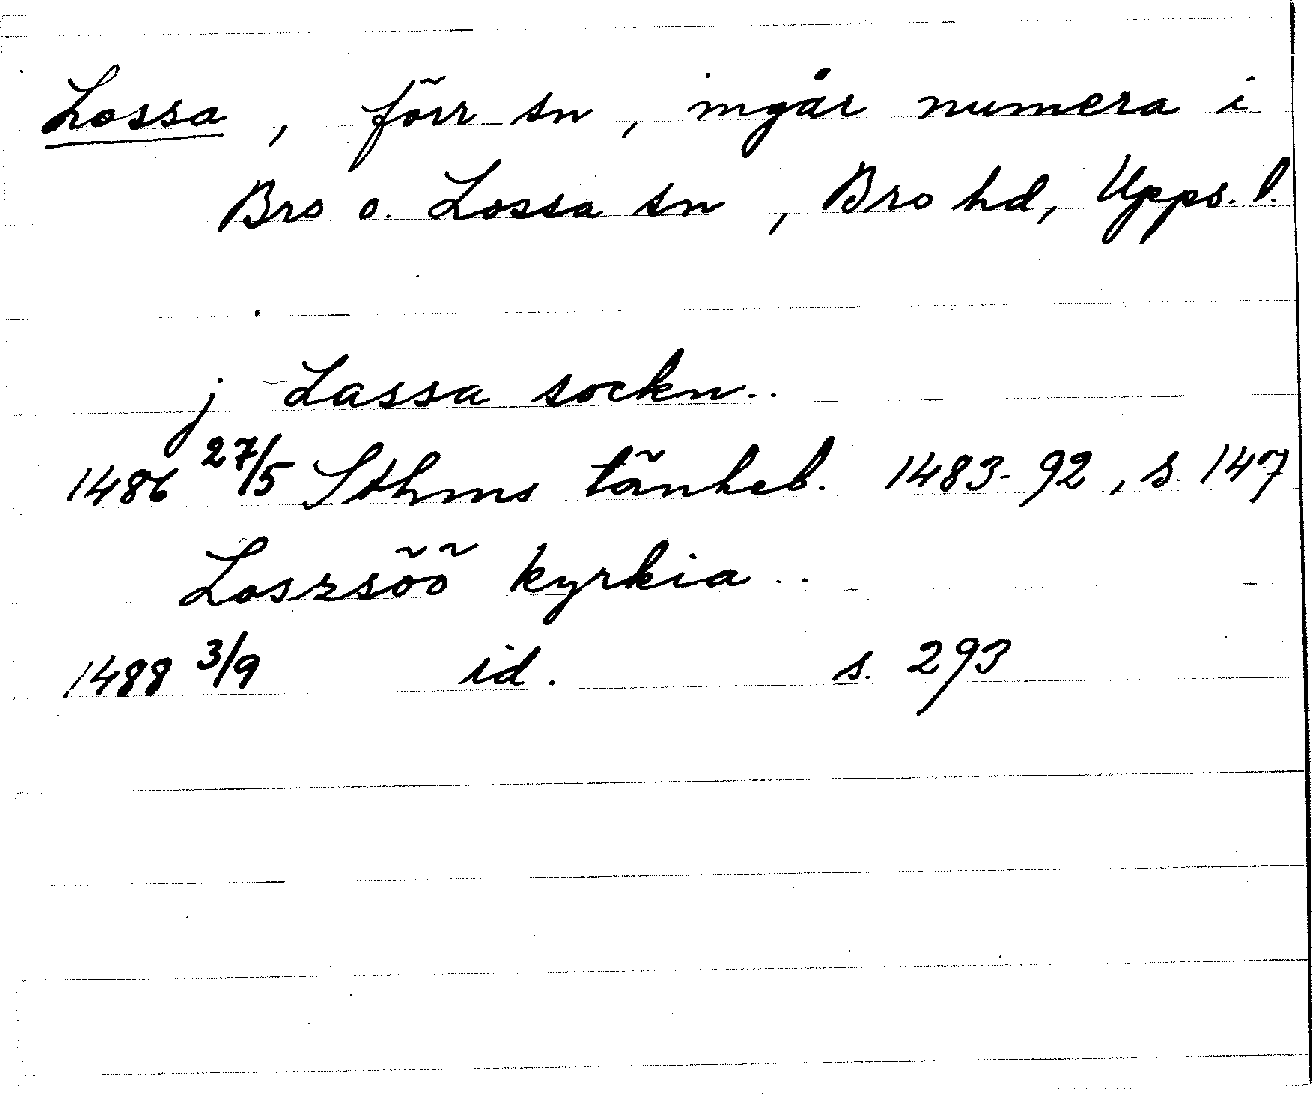 Lossa, förr sn, ingår numera i
Bro o. Lossa sn, Bro hd, Upps. l.
j Lassa sockn..
1486 27/5 Sthms tänkeb. 1483-92, s. 147
Loszsöö kyrkia ..
1488 3/9 id. s. 293